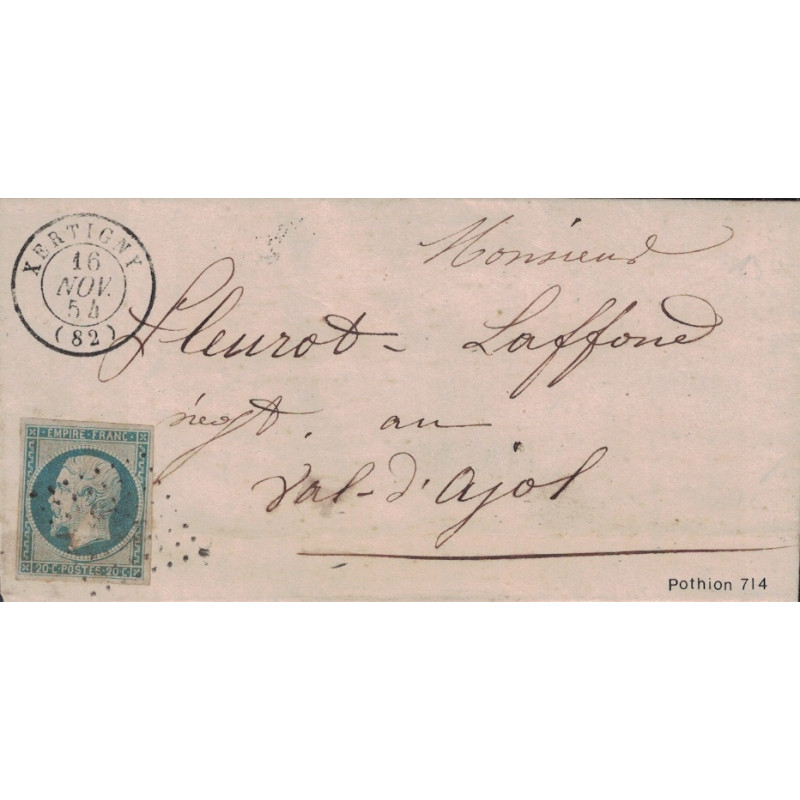 XERTIGNY
16
NOV.
54
(82)
Monsieur
Fleurot - Laffond
négt. au
Val-d'Ajol
EMPIRE FRANC
20·C·POSTES·20·C
Pothion 714